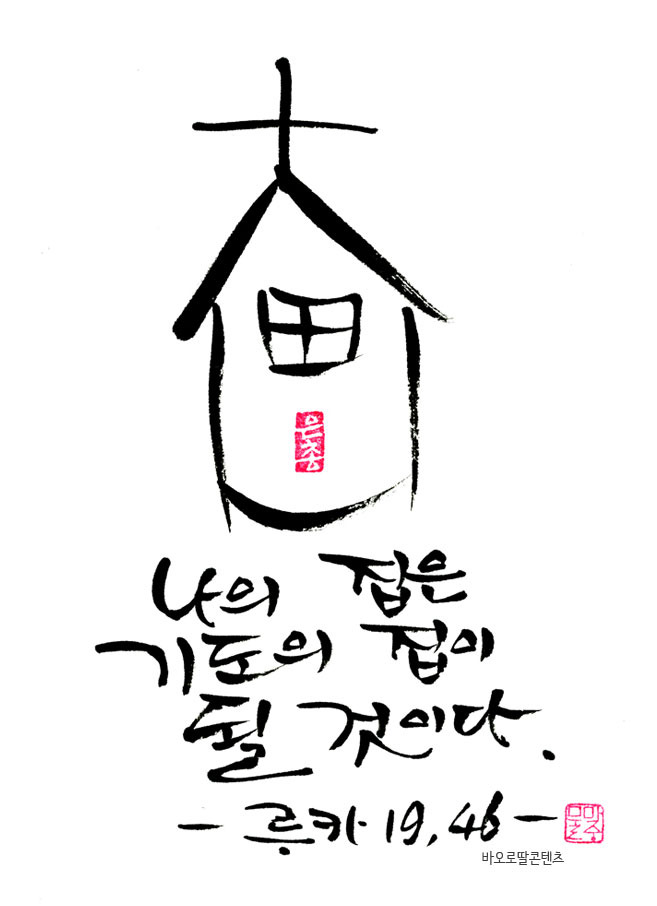 은총
나의 집은
기도의 집이
될 것이다.
- 루카 19, 46 -
바오로딸콘텐츠